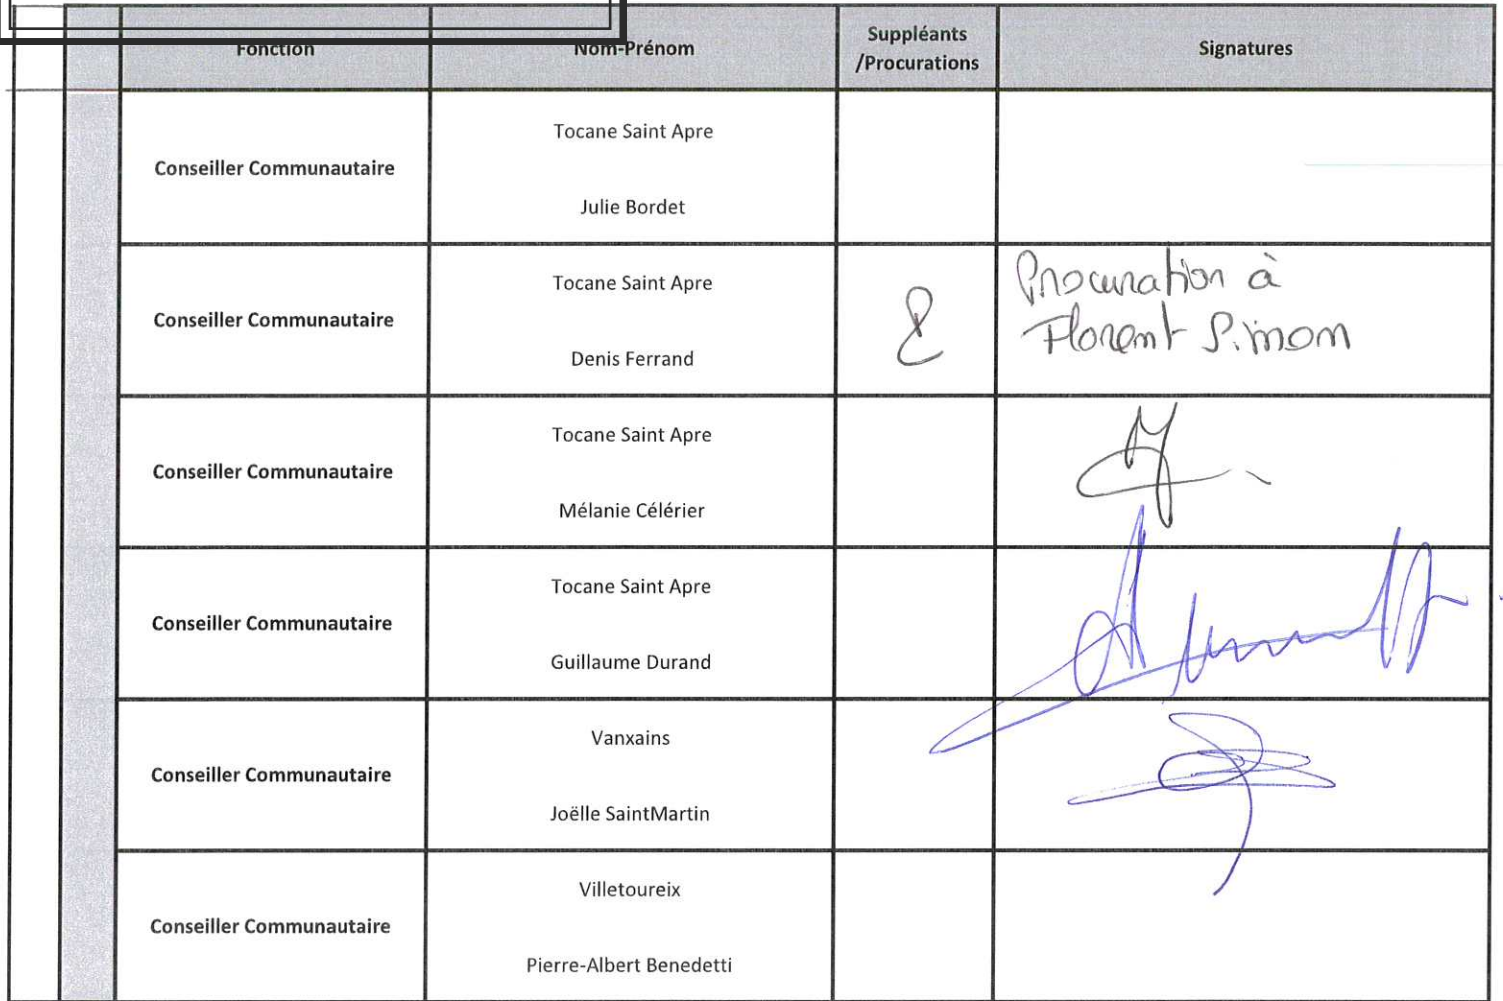 Fonction
Nom-Prénom
Suppléants
/Procurations
Signatures
Conseiller Communautaire
Tocane Saint Apre
Julie Bordet
Conseiller Communautaire
Tocane Saint Apre
Denis Ferrand
Procuration à
Florent Simon
Conseiller Communautaire
Tocane Saint Apre
Mélanie Célérier
Conseiller Communautaire
Tocane Saint Apre
Guillaume Durand
Conseiller Communautaire
Vanxains
Joëlle SaintMartin
Conseiller Communautaire
Villetoureix
Pierre-Albert Benedetti